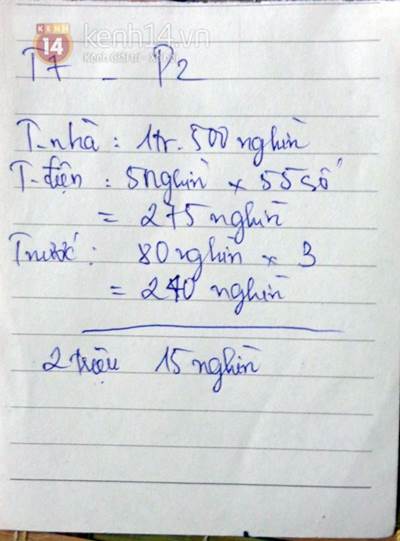 KENH 14
kenh14.vn
T7 - P2
T-nhà : 1tr. 500 nghìn
T-điện : 5nghìn × 55 số
= 275 nghìn
T-nước : 80 nghìn × 3
= 240 nghìn
2 triệu 15 nghìn